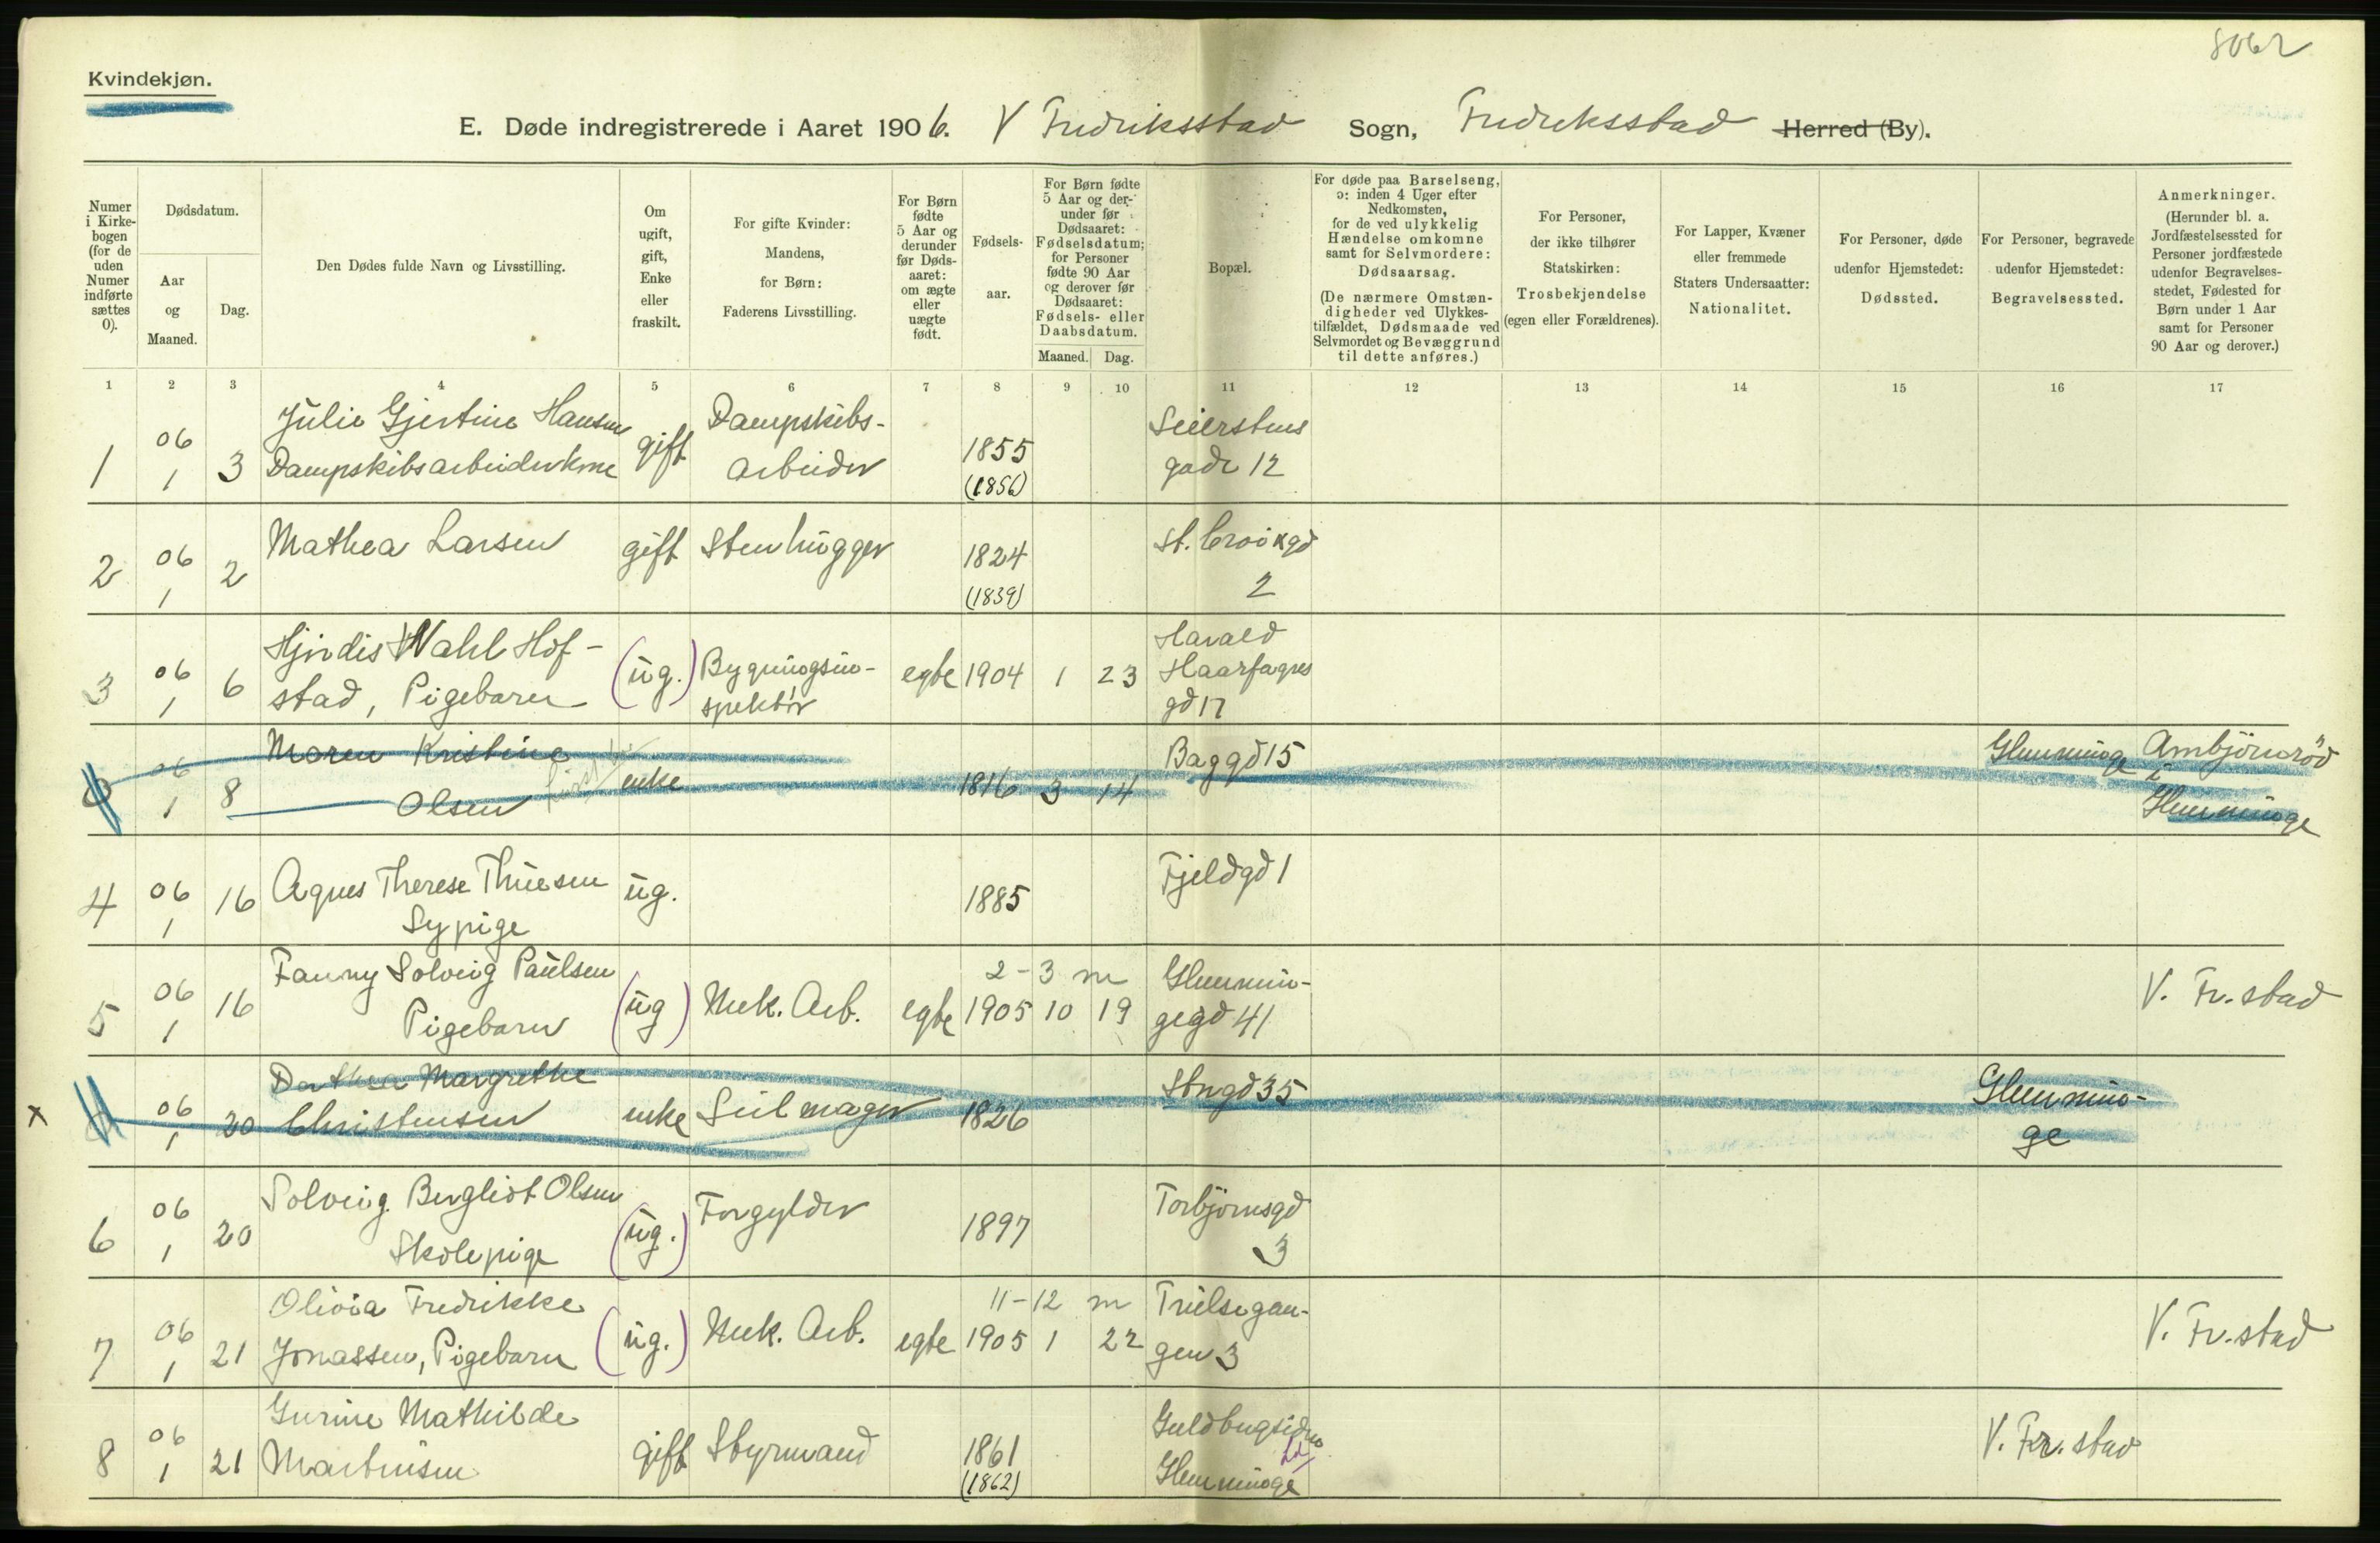 8062
Kvindekjøn.
E. Døde indregistrerede i Aaret 1906. V Fredriksstad Sogn, Fredriksstad Herred (By).
Numer i Kirkebogen (for de uden Numer indførte sættes 0).
Dødsdatum.
Aar og Maaned.
Dag.
Den Dødes fulde Navn og Livsstilling.
Om ugift, gift, Enke eller fraskilt.
For gifte Kvinder: Mandens, for Børn: Faderens Livsstilling.
For Børn fødte 5 Aar og derunder før Dødsaaret: om ægte eller uægte født.
Fødselsaar.
For Børn fødte 5 Aar og derunder før Dødsaaret: Fødselsdatum; for Personer fødte 90 Aar og derover før Dødsaaret: Fødsels- eller Daabsdatum.
Maaned. Dag.
Bopæl.
For døde paa Barselseng, ɔ: inden 4 Uger efter Nedkomsten, for de ved ulykkelig Hændelse omkomne samt for Selvmordere: Dødsaarsag.
(De nærmere Omstændigheder ved Ulykkestilfældet, Dødsmaade ved Selvmordet og Bevæggrund til dette anføres.)
For Personer, der ikke tilhører Statskirken: Trosbekjendelse (egen eller Forældrenes).
For Lapper, Kvæner eller fremmede Staters Undersaatter: Nationalitet.
For Personer, døde udenfor Hjemstedet: Dødssted.
For Personer, begravede udenfor Hjemstedet: Begravelsessted.
Anmerkninger.
(Herunder bl. a. Jordfæstelsessted for Personer jordfæstede udenfor Begravelsesstedet, Fødested for Børn under 1 Aar samt for Personer 90 Aar og derover.)
1 2 3 4 5 6 7 8 9 10 11 12 13 14 15 16 17
1 06 1 3 Julie Gjertine Hansen gift Dampskibs- 1855 Seierstens
Dampskibsarbeiderkone arbeider (1856) gade 12
2 06 1 2 Mathea Larsen gift Stenhugger 1824 St. Croixgd
(1839) 2
3 06 1 6 Hjørdis Wahl Hof- (ug.) Bygningsin- egte 1904 1 23 Harald
stad, Pigebarn spektør Haarfagres
gd 17
0 06 1 8 Maren Kristine enke 1816 3 14 Baggd 15 Glemminge Ambjörnröd
Olsen i
Glemminge
4 06 1 16 Agnes Therese Thuesen ug. 1885 Fjeldgd 1
Sypige
5 06 1 16 Fanny Solveig Paulsen (ug) Mek. Arb. egte 2-3 m Glemmin- V. Fr.stad
Pigebarn 1905 10 19 gegd 41
x 06 1 20 Dorthea Margrethe enke Seilmager 1826 Stngd 35 Glemmin-
Christensen ge
6 06 1 20 Solveig Bergliot Olsen (ug.) Forgylder 1897 Torbjörnsgd
Skolepige 3
7 06 1 21 Olivia Fredrikke (ug.) Mek. Arb. egte 11-12 m Trulsegan- V. Fr.stad
Jonassen, Pigebarn 1905 1 22 gen 3
8 06 1 21 Gurine Mathilde gift Styrmand 1861 V. Fr.stad
Martinsen (1862) Glemminge